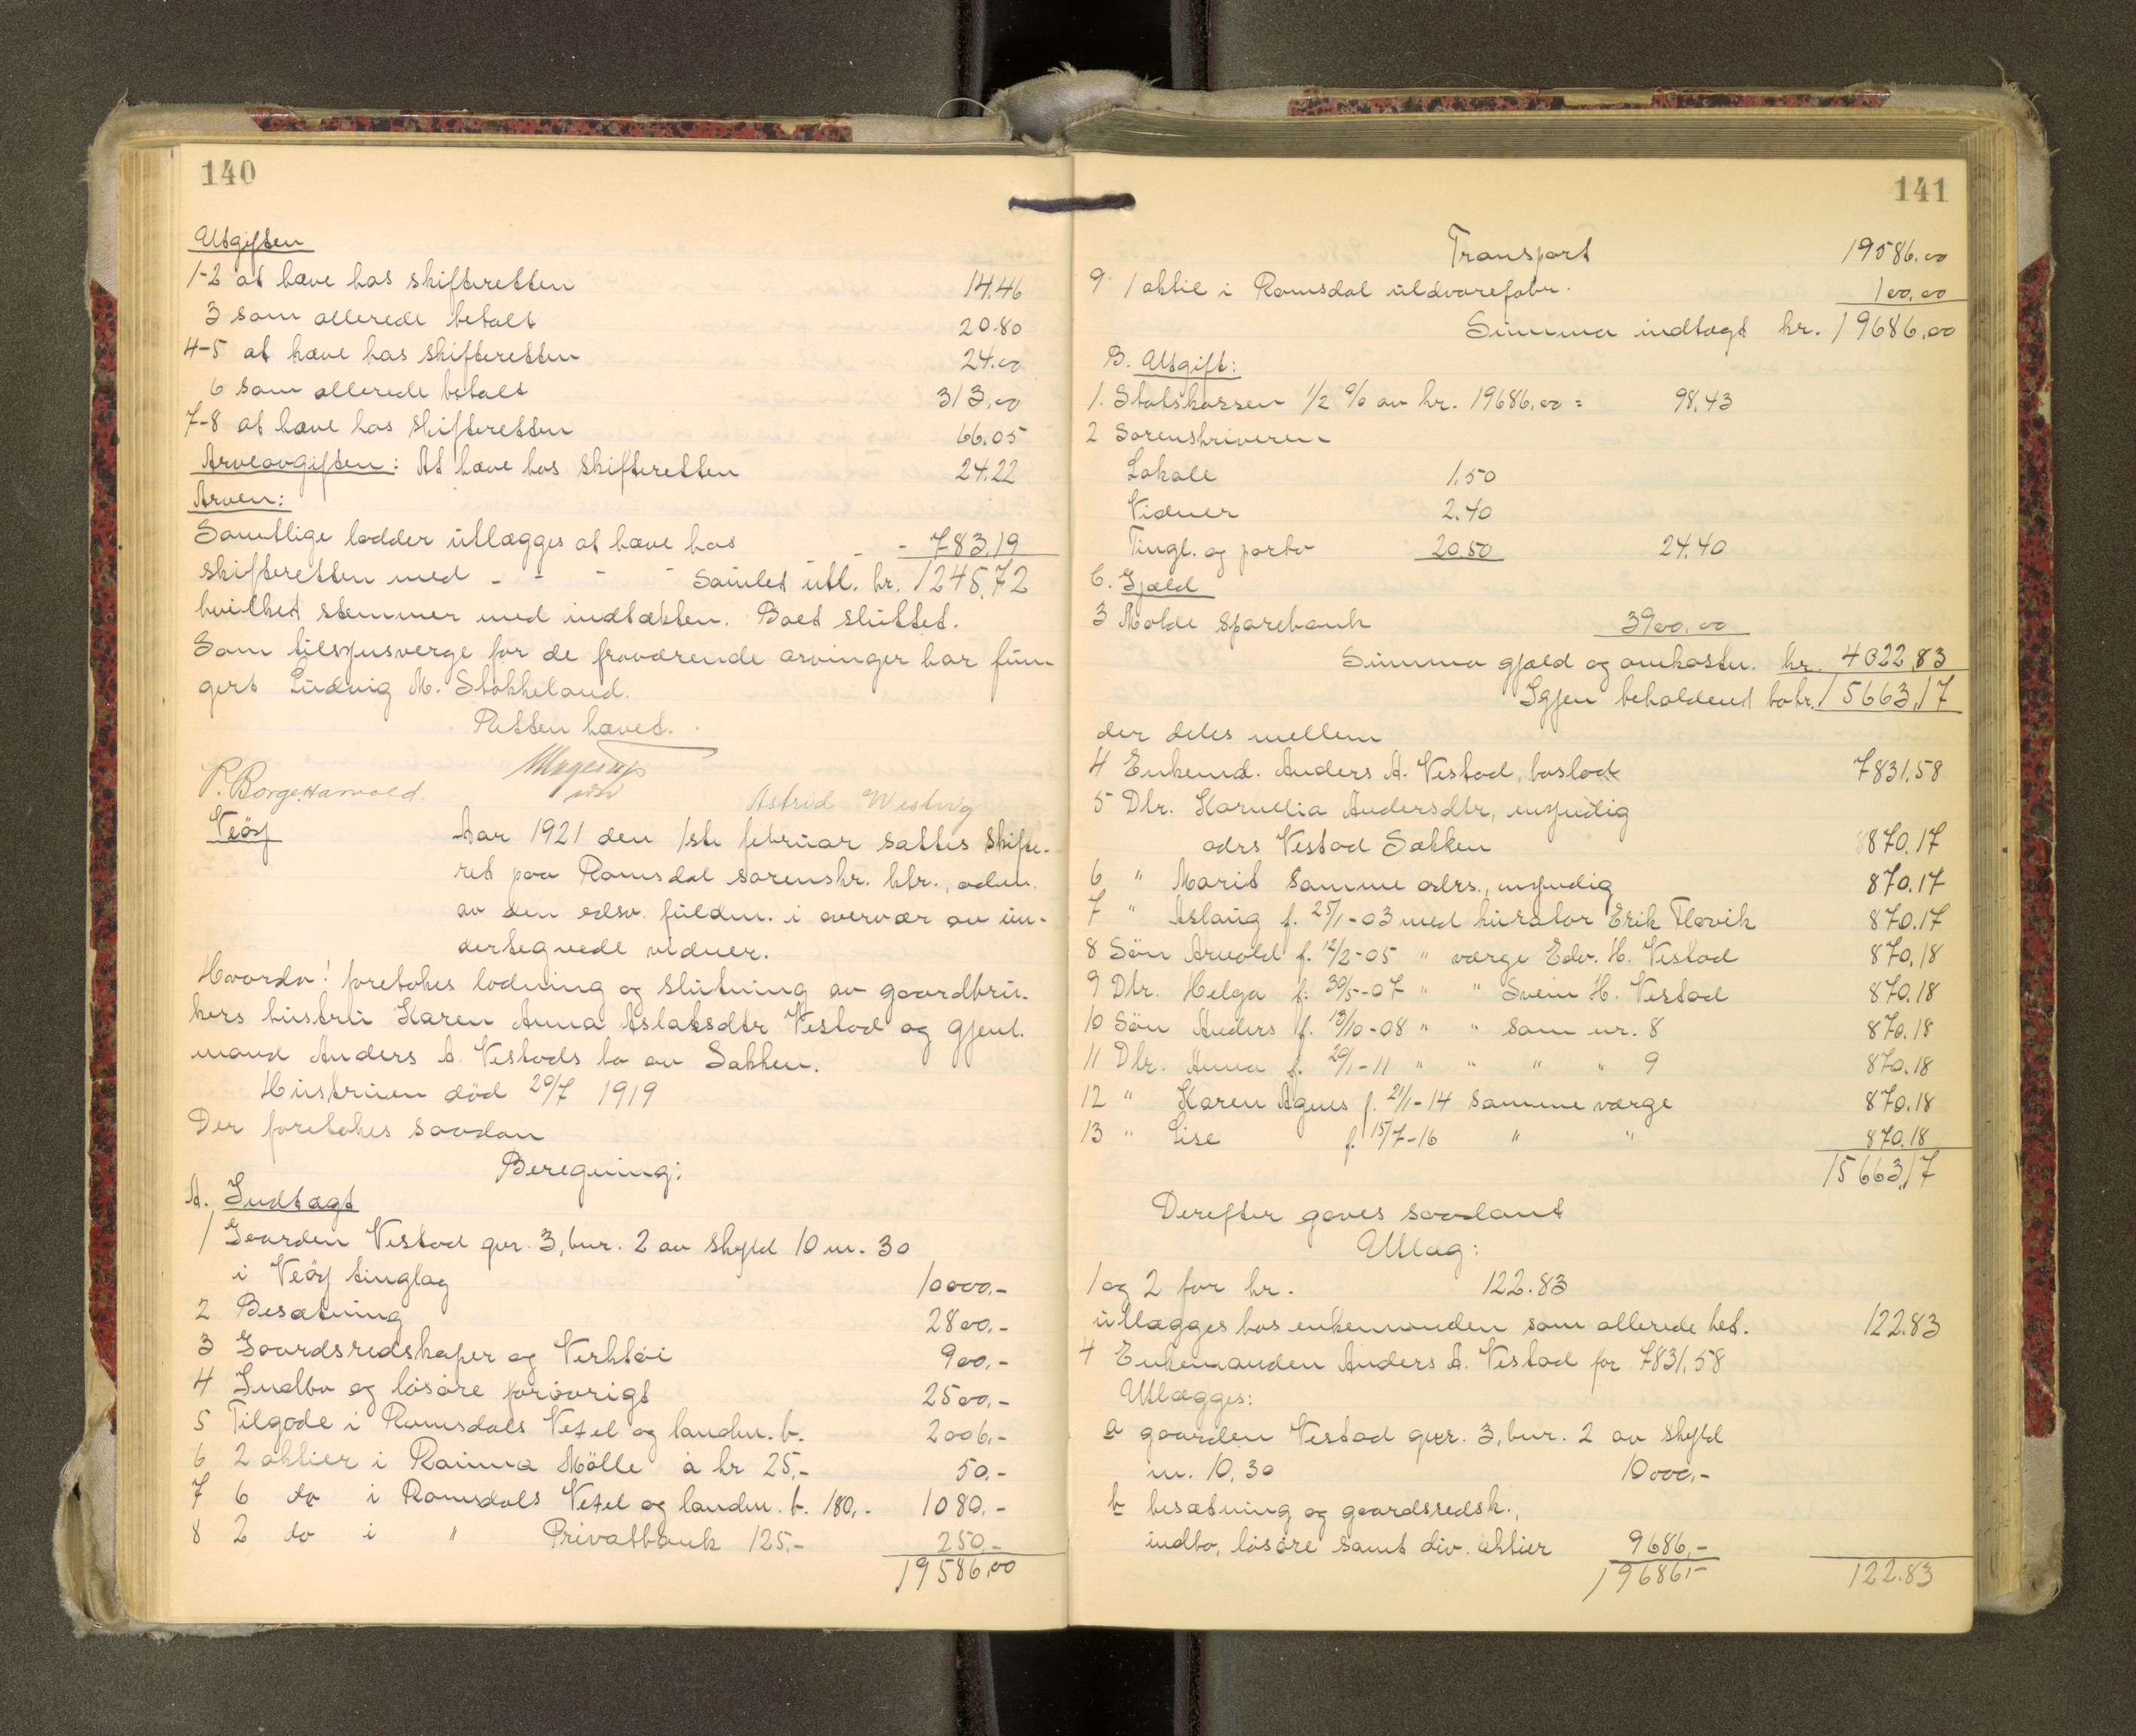 140
Utgiften
1-2 at hæve hos skifteretten 14.46
3 som allerede betalt 20.80
4-5 at hæve hos skifteretten 24.00
6 som allerede betalt 313.00
7-8 at hæve hos skifteretten 66.05
Arveavgiften: At hæve hos skifteretten 24.22
Arven:
Samtlige lodder utlægges at hæve hos
skifteretten med - - - - - - 783.19
Samlet utl. kr. 1245,72
hvilket stemmer med indtækten. Boet sluttet.
Som tilsynsverge for de fraværende arvinger har fun-
gert Ludvig M. Stokkeland.
Retten hævet.
P. Borge Harvold. Astrid Westvig
Veöy
Aar 1921 den 1ste februar sattes skifte-
ret paa Romsdal sorenskr. ktr., adm.
av den edsv. fuldm. i overvær av un-
dertegnede vidner.
Hvorda! foretokes lodning og slutning av gaardbru-
kers hustru Karen Anna Aslaksdtr Vestad og gjenl.
mand Anders A. Vestads bo av Sekken.
Hustruen död 20/7 1919
Der foretokes saadan
Beregning:
A. Indtægt
1 Gaarden Vestad gnr. 3, bnr. 2 av skyld 10 m. 30
i Veöy tinglag 10000.-
2 Besætning 2800.-
3 Gaardsredskaper og Verktöi 900.-
4 Indbo og lösöre forövrigt 2500.-
5 Tilgode i Romsdals Vexel og landm. b. 2006.-
6 2 aktier i Rauma Mölle á kr 25.- 50.-
7 6 do i Romsdals Vexel og landm. b. 180.- 1080.-
8 2 do i " Privatbank 125.- 250.-
19586,00
141
Transport 19586.00
9. 1 aktie i Romsdal uldvarefabr. 100.00
Summa indtægt kr. 19686,00
B. Utgift:
1. Statskassen 1/2 % av kr. 19686,00 = 98.43
2 Sorenskriveren
Lokale 1.50
Vidner 2.40
Tingl. og porto 20.50 24.40
C. Gjæld
3 Molde Sparebank 3900.00
Summa gjæld og omkostn. kr. 4022,83
Igjen beholdent bo kr. 15663,17
der deles mellem
4 Enkemd. Anders A. Vestad, boslod 7831.58
5 Dtr. Kornelia Andersdtr, myndig
adrs Vestad Sekken 870.17
6 " Marit samme adrs., myndig 870.17
7 " Aslaug f. 25/1-03 med kurator Erik Flovik 870.17
8 Sön Arnold f. 12/2-05 " værge Edv. H. Vestad 870.18
9 Dtr. Helga f. 30/5-07 " " Svein H. Vestad 870.18
10 Sön Anders f. 13/10-08 " " som nr. 8 870.18
11 Dtr. Anna f. 29/1-11 " " " " 9 870.18
12 " Karen Agnes f. 21/1-14 samme værge 870.18
13 " Lise f. 15/7-16 " " 870.18
15663,17
Derefter gaves saadant
Utlæg:
1 og 2 for kr. 122.83
utlægges hos enkemanden som allerede bet. 122.83
4 Enkemanden Anders A. Vestad for 7831.58
Utlægges:
a gaarden Vestad gnr. 3, bnr. 2 av skyld
m. 10,30 10000.-
b besætning og gaardsredsk.,
indbo, lösöre samt div. aktier 9686.-
19686,- 122.83